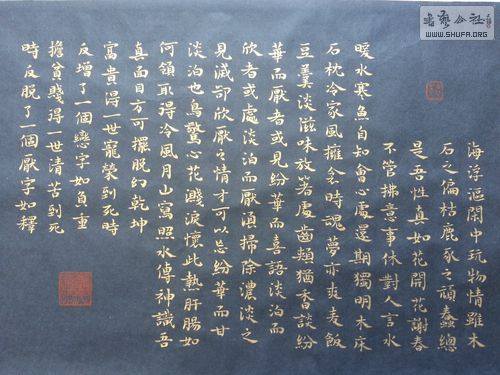 海浮漚閑中玩物情雖木
石之偏枯鹿豕之頑蠢總
是吾性真如花開花謝春
不管拂意事休對人言水
暖水寒魚自知會心處還期獨明木床
石枕冷家風擁衾時魂夢亦爽麦飯
豆羹淡滋味放箸處齒頰猶香談紛
華而厭者或見紛華而喜語淡泊而
欣者或處淡泊而厭須掃除濃淡之
見滅卻欣厭之情才可以忘紛華而甘
淡泊也鳥驚心花濺淚懷此熱肝腸如
何領取得冷風月山寫照水傳神識吾
真面目方可擺脫幻乾坤
富貴得一世寵榮到死時
反增了一個戀字如負重
擔貧賤得一世清苦到死
時反脫了一個厭字如釋
書藝公社
WWW.SHUFA.ORG